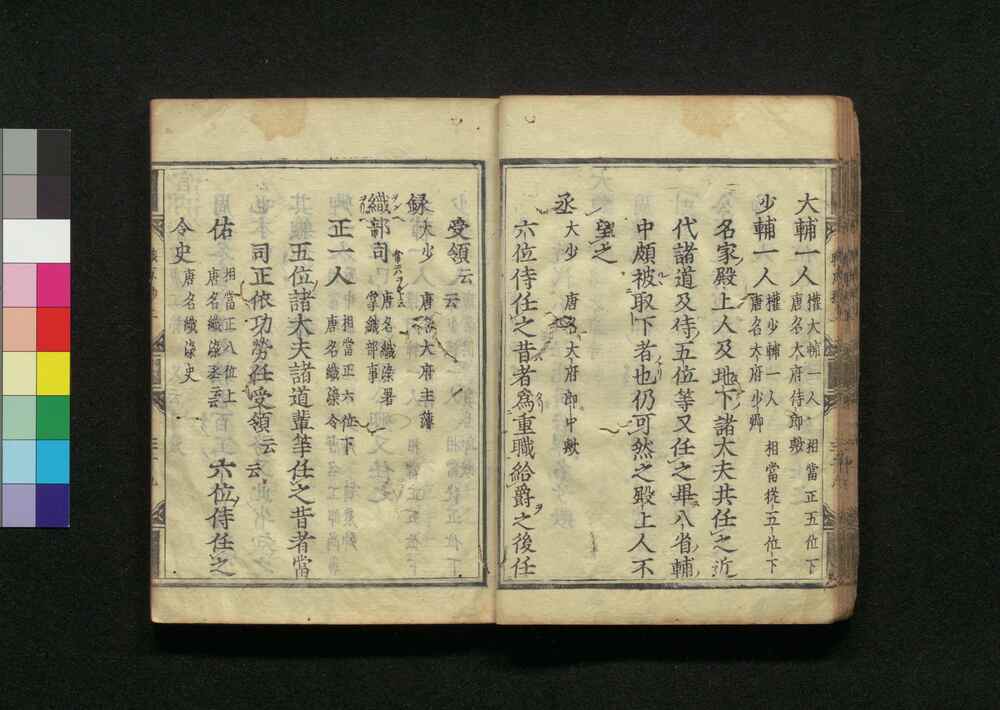 大輔一人 權大輔一人 相當正五位下
唐名大府侍郎歟
少輔一人 權少輔一人 相當從五位下
唐名大府少卿
名家殿上人及地下諸大夫共任之近
代諸道及侍五位等又任之畢八省輔
中頗被取下者也仍可然之殿上人不
望之
丞 大少 唐名大府郎中歟
六位侍任之昔者爲重職給爵之後任
受領云云
録 大少 唐名大府主簿
織部司 唐名織染署
掌織部事
正一人 相當正六位下
唐名織染令
五位諸大夫諸道輩等任之昔者當
司正依功勞任受領云云
佑 相當正八位上 六位侍任之
唐名織染丞
令史 唐名織染史